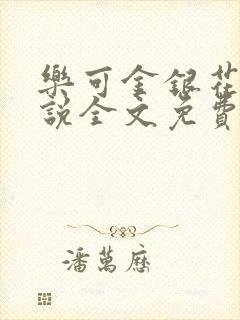 樂可金銀花
說全文免費
潘萬歷